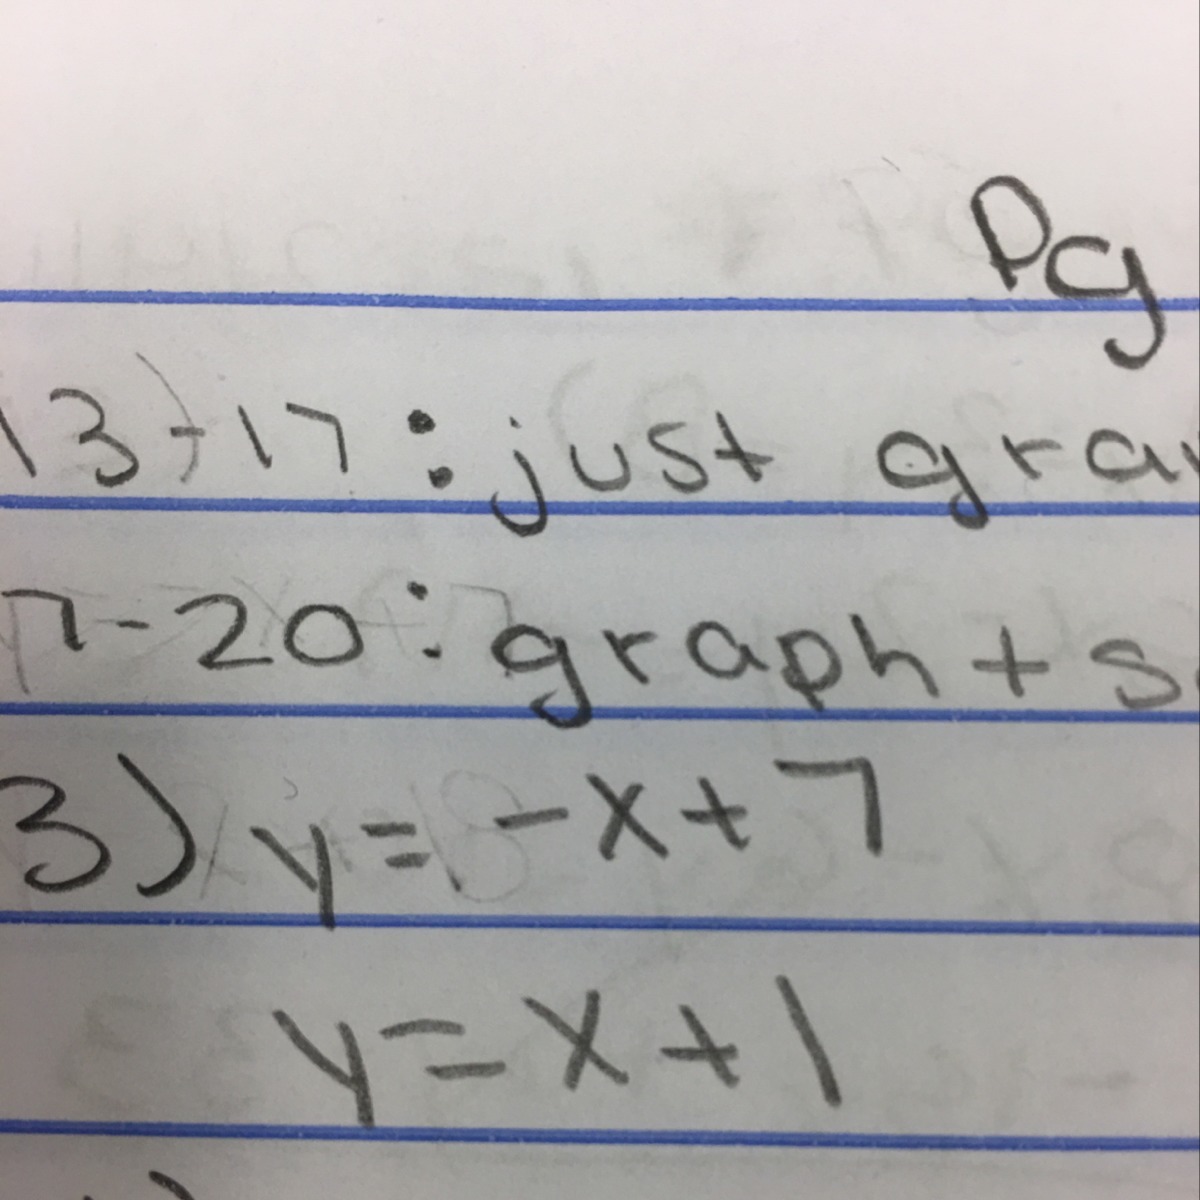 Pg
13-17: just gra
7-20: graph + s
3) y = -x + 7
y = x + 1